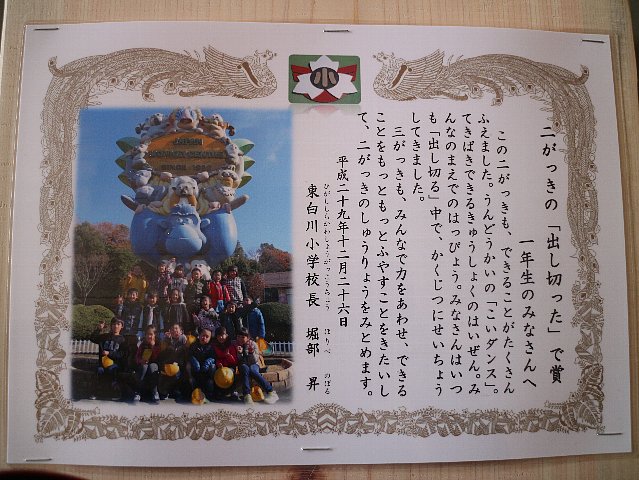 二がっきの「出し切った」で賞
一年生のみなさんへ
この二がっきも、できることがたくさん
ふえました。うんどうかいの「こいダンス」。
てきぱきできるきゅうしょくのはいぜん。み
んなのまえでのはっぴょう。みなさんはいつ
も「出し切る」中で、かくじつにせいちょう
してきました。
三がっきも、みんなで力をあわせ、できる
ことをもっともっとふやすことをきたいし
て、二がっきのしゅうりょうをみとめます。
平成二十九年十二月二十六日
ひがししらかわしょうがっこうこうちょう ほりべ のぼる
東白川小学校長 堀部 昇
小
JAPAN
MONKEY CENTRE